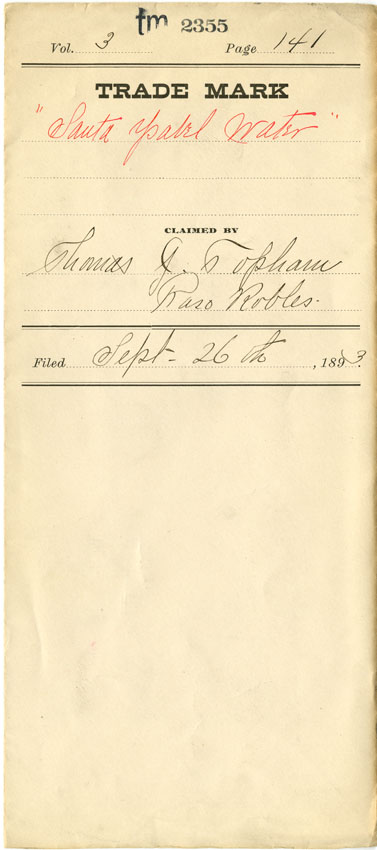 tm 2355
Vol. 3 Page 141
TRADE MARK
"Santa Ysabel Water"
CLAIMED BY
Thomas J. Topham
Paso Robles.
Filed Sept- 26th, 1893.